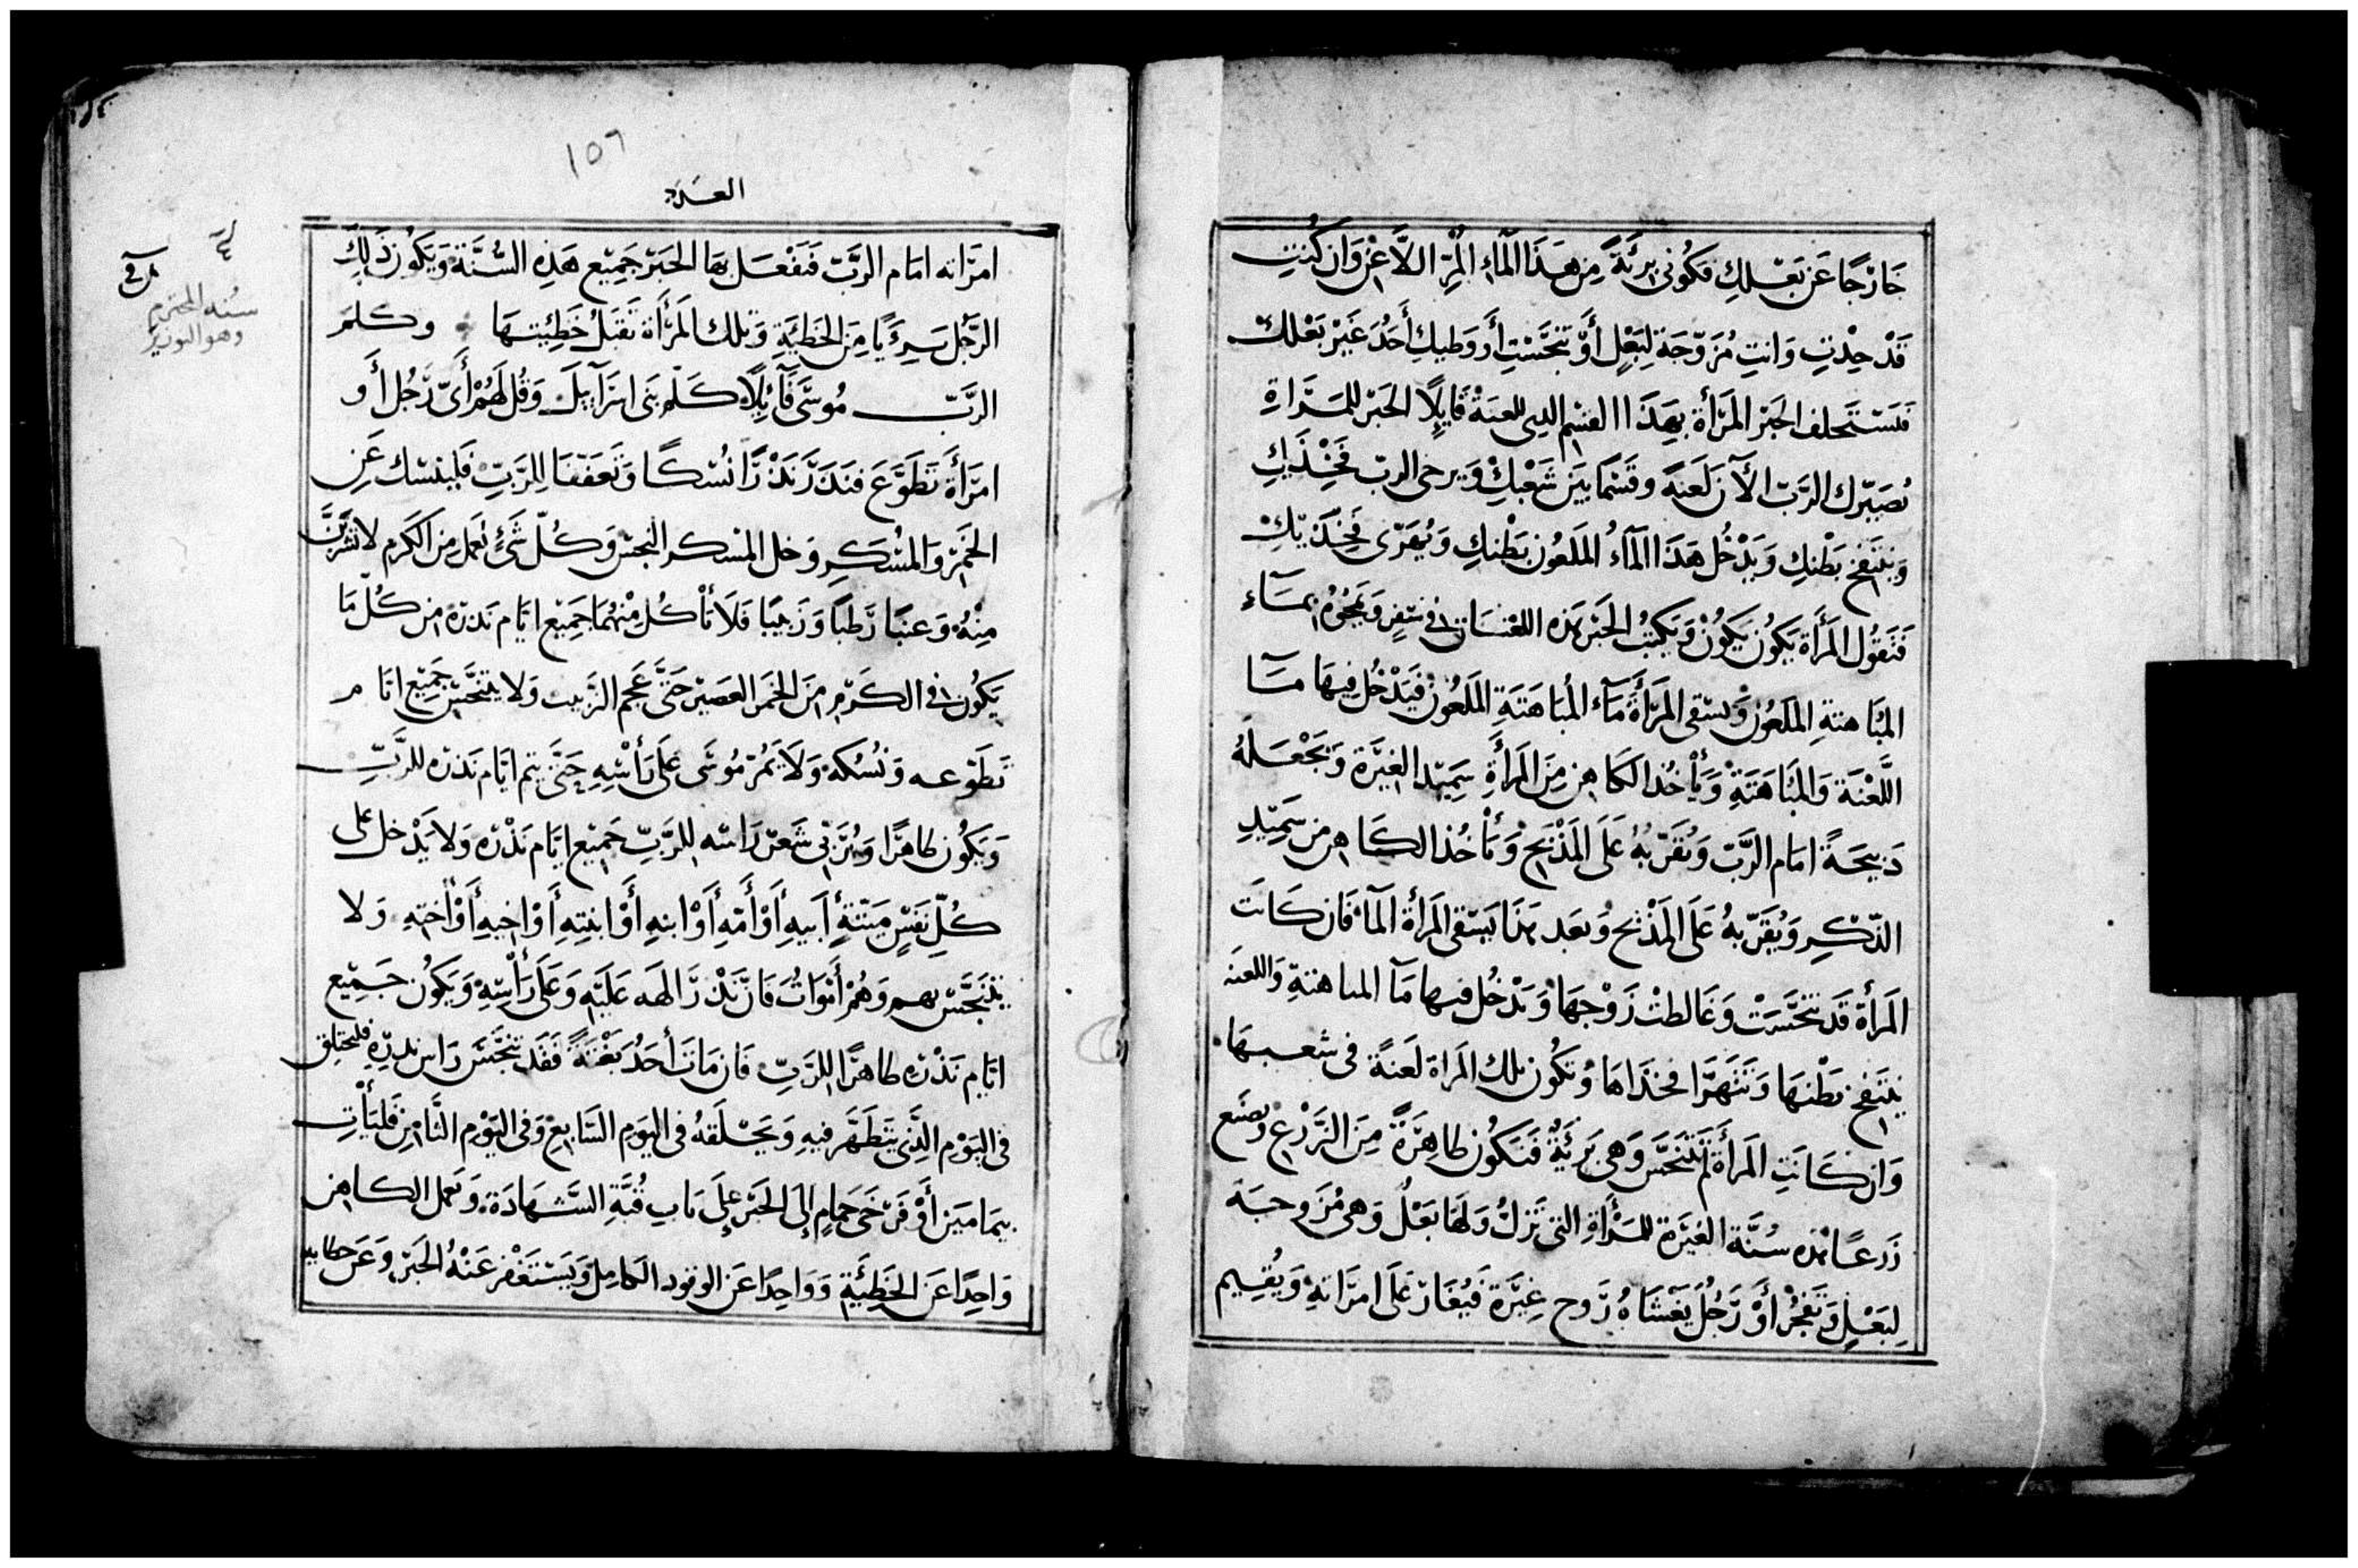 خَارْجًا عَن بَعْلكِ فكُونى بريَّةً مِن هَذَا المآءِ المُرِّ اللاَّعِن وَان كُنتِ
قَدْ حِدْتِ وَانتِ مُزَوّجَة لِبَعْلٍ أوْ تنجَّستِ أو وَطيكِ أحَدُ غَيْر بَعْلك
فَستحلف الحَبْر المَرْأة بهَذَا القسْم الذى للعنَةْ قَايلًا الحَبْر للمَرْاةِ
يُصَيّرك الرَّبّ الآن لَعنَة وقسْمًا بيَن شَعْبكْ وَيرخى الربّ فخْذَيكِ
وَينتَفخ بَطْنكِ وَيَدْخُل هَذَا المآءُ المَلعُون بَطْنكِ وَيُهَرّى فَخِذَيْكِ
فَتقوُل المَرْأة يَكوُن يَكوُنْ وَيَكتبُ الحَبْر هَذه اللعْنَات فى سفِرٍ وَيَمحُوْهُ بمَآءِ
المُبَاهتةِ المَلعُونْ وَيسْقى المَرْأةَ مَآء المُبَاهَتَةِ المَلعُونْ فَيَدْخُل فيهَا مَآ
اللَّعْنَة وَالمُبَاهَتَةِ وَيَأْخُذ الكَاهِن مِنَ المَرأةِ سَمِيْد الغيْرَة وَيَجْعَلهُ
ذبيحَةً امَام الرَّبّ وَيُقَرّبهُ عَلَى المَذْبَحْ وَيَأْخُذ الكَاهِن من سَمِيْدِ
الذّكْرِ وَيُقَرّبهُ عَلَى المَذْبَح وَبَعد هَذَا يَسْقى المَرأة المَآء فَان كَانَت
المَرأة قَد تنجَّسَتْ وَغَالطتْ زَوْجهَا وَيَدْخُل فيها مَآ المباهتةِ وَاللعنَه
يَنتَفخ بَطْنهَا وَتَتهَرَّا فخذَاهَا وَتكُون تلك المَراة لَعنَةً فى شعبهَا
وَان كَانَتِ المَرأة لَم تتنَجَّس وَهى بَرئَيَةٌ فَتكُون طَاهِرَةً مِنَ الزَّرْع وتصنَع
زَرعًا هَذه سُنَّة الغيْرَة للمَرْأةِ التى تَزلّ وَلهَا بَعْلٌ وَهى مُزَوجَة
لِبَعْلٍ وَتَفجُرْ أوْ رَجُل يَغشَاهُ رُوح غيْرَة فَيُغَارْ عَلَى امرَاتهِ وَيُقيم
١٥٦
العَدَد
امرَاته امَام الرَّبّ فَيفْعَل بهَا الحَبْر جَمِيْع هَذِهِ السُّنَّة وَيَكوُن ذَلِكَ
الرَّجُل بَرِيَّا مِنَ الخَطيَّةِ وَتلك المَرْأة تقبَلُ خَطِيّتهَا وكلمَ
الرَّبّ مُوسَى قَآئِلًا كَلّم بَنى اسْرَآئِيل وَقُل لَهُمْ أىّ رَجُل أَو
امرَأة تَطَوَّعَ فنَذَرَ نَذْرًا نُسْكًا وَتَعَفّفًا لِلرَّبّ فَليَنسَك عَنِ
الخَمْر وَالمُسْكرِ وَخل المسكر النجس وَكُلّ شَئٍ يُعَمل مِن الكَرم لا يَشْرَبَنَّ
مِنْهُ وَعنبًا رَطبًا وَزَبيبًا فَلَا يَأكُل مِنْهُمَا جَمِيْع ايَّام نَذرَهْ من كُلّ مَا
يَكُون فى الكَرْمِ مِنَ الخَمَر العَصيْر حَتَّى عَجم الزَّبيب وَلا يتنجَّس جَمِيْع ايَّام
تَطَوّعه وَنُسْكهْ وَلَا يَمُرّ مُوسَى عَلَى رَأسْهِ حَتَّى يتم ايَّام نَذرَه للرَّبّ
وَيَكُون طَاهرًا وَيُرَبّى شَعْر رَاسه للرَّبّ جَمِيْع ايَّام نَذْرَه وَلا يَدْخل على
كُلّ نَفْسٍ مَيْتَةٍ أبيهِ أوْ أُمّهِ أوْ ابنهِ أوْ ابنتِهِ أوْ اخيهِ أوْ أختِهِ وَلا
يتنجَّس بهم وَهُمْ أمْوَاتُ فَانَّ نَذْرَ الهه عَليهِ وَعَلَى رَأْسِهْ وَيَكُون جَمِيْع
ايَّام نَذْرهِ طَاهرًا للرَّبّ فَان مَاتَ أحَدُ بَغْتَةً فقَد تنجَّسَ رَاس نذرَهِ فليَحلق
فى اليَوْمِ الَّذى يَتَطَهَّر فيهِ وَيَحْلقهُ فى اليَومِ السَّابعْ وَفى اليَوْم الثَّامِن فَليَأتِ
بيمَاميَن أَوْ فَرْخَى حَمَامٍ إلَى الحَبْر عَلَى بَاب قُبَّةِ الشَّهَادَة وَيعمَل الكَاهِن
وَاحِدًا عَن الخَطِيئَةِ وَوَاحِدًا عَن الوقود الكَامل وَيَسْتَغْفر عَنْهُ الحَبْر وَعَن خطاياه
سُنة المحترم
وهو النويز